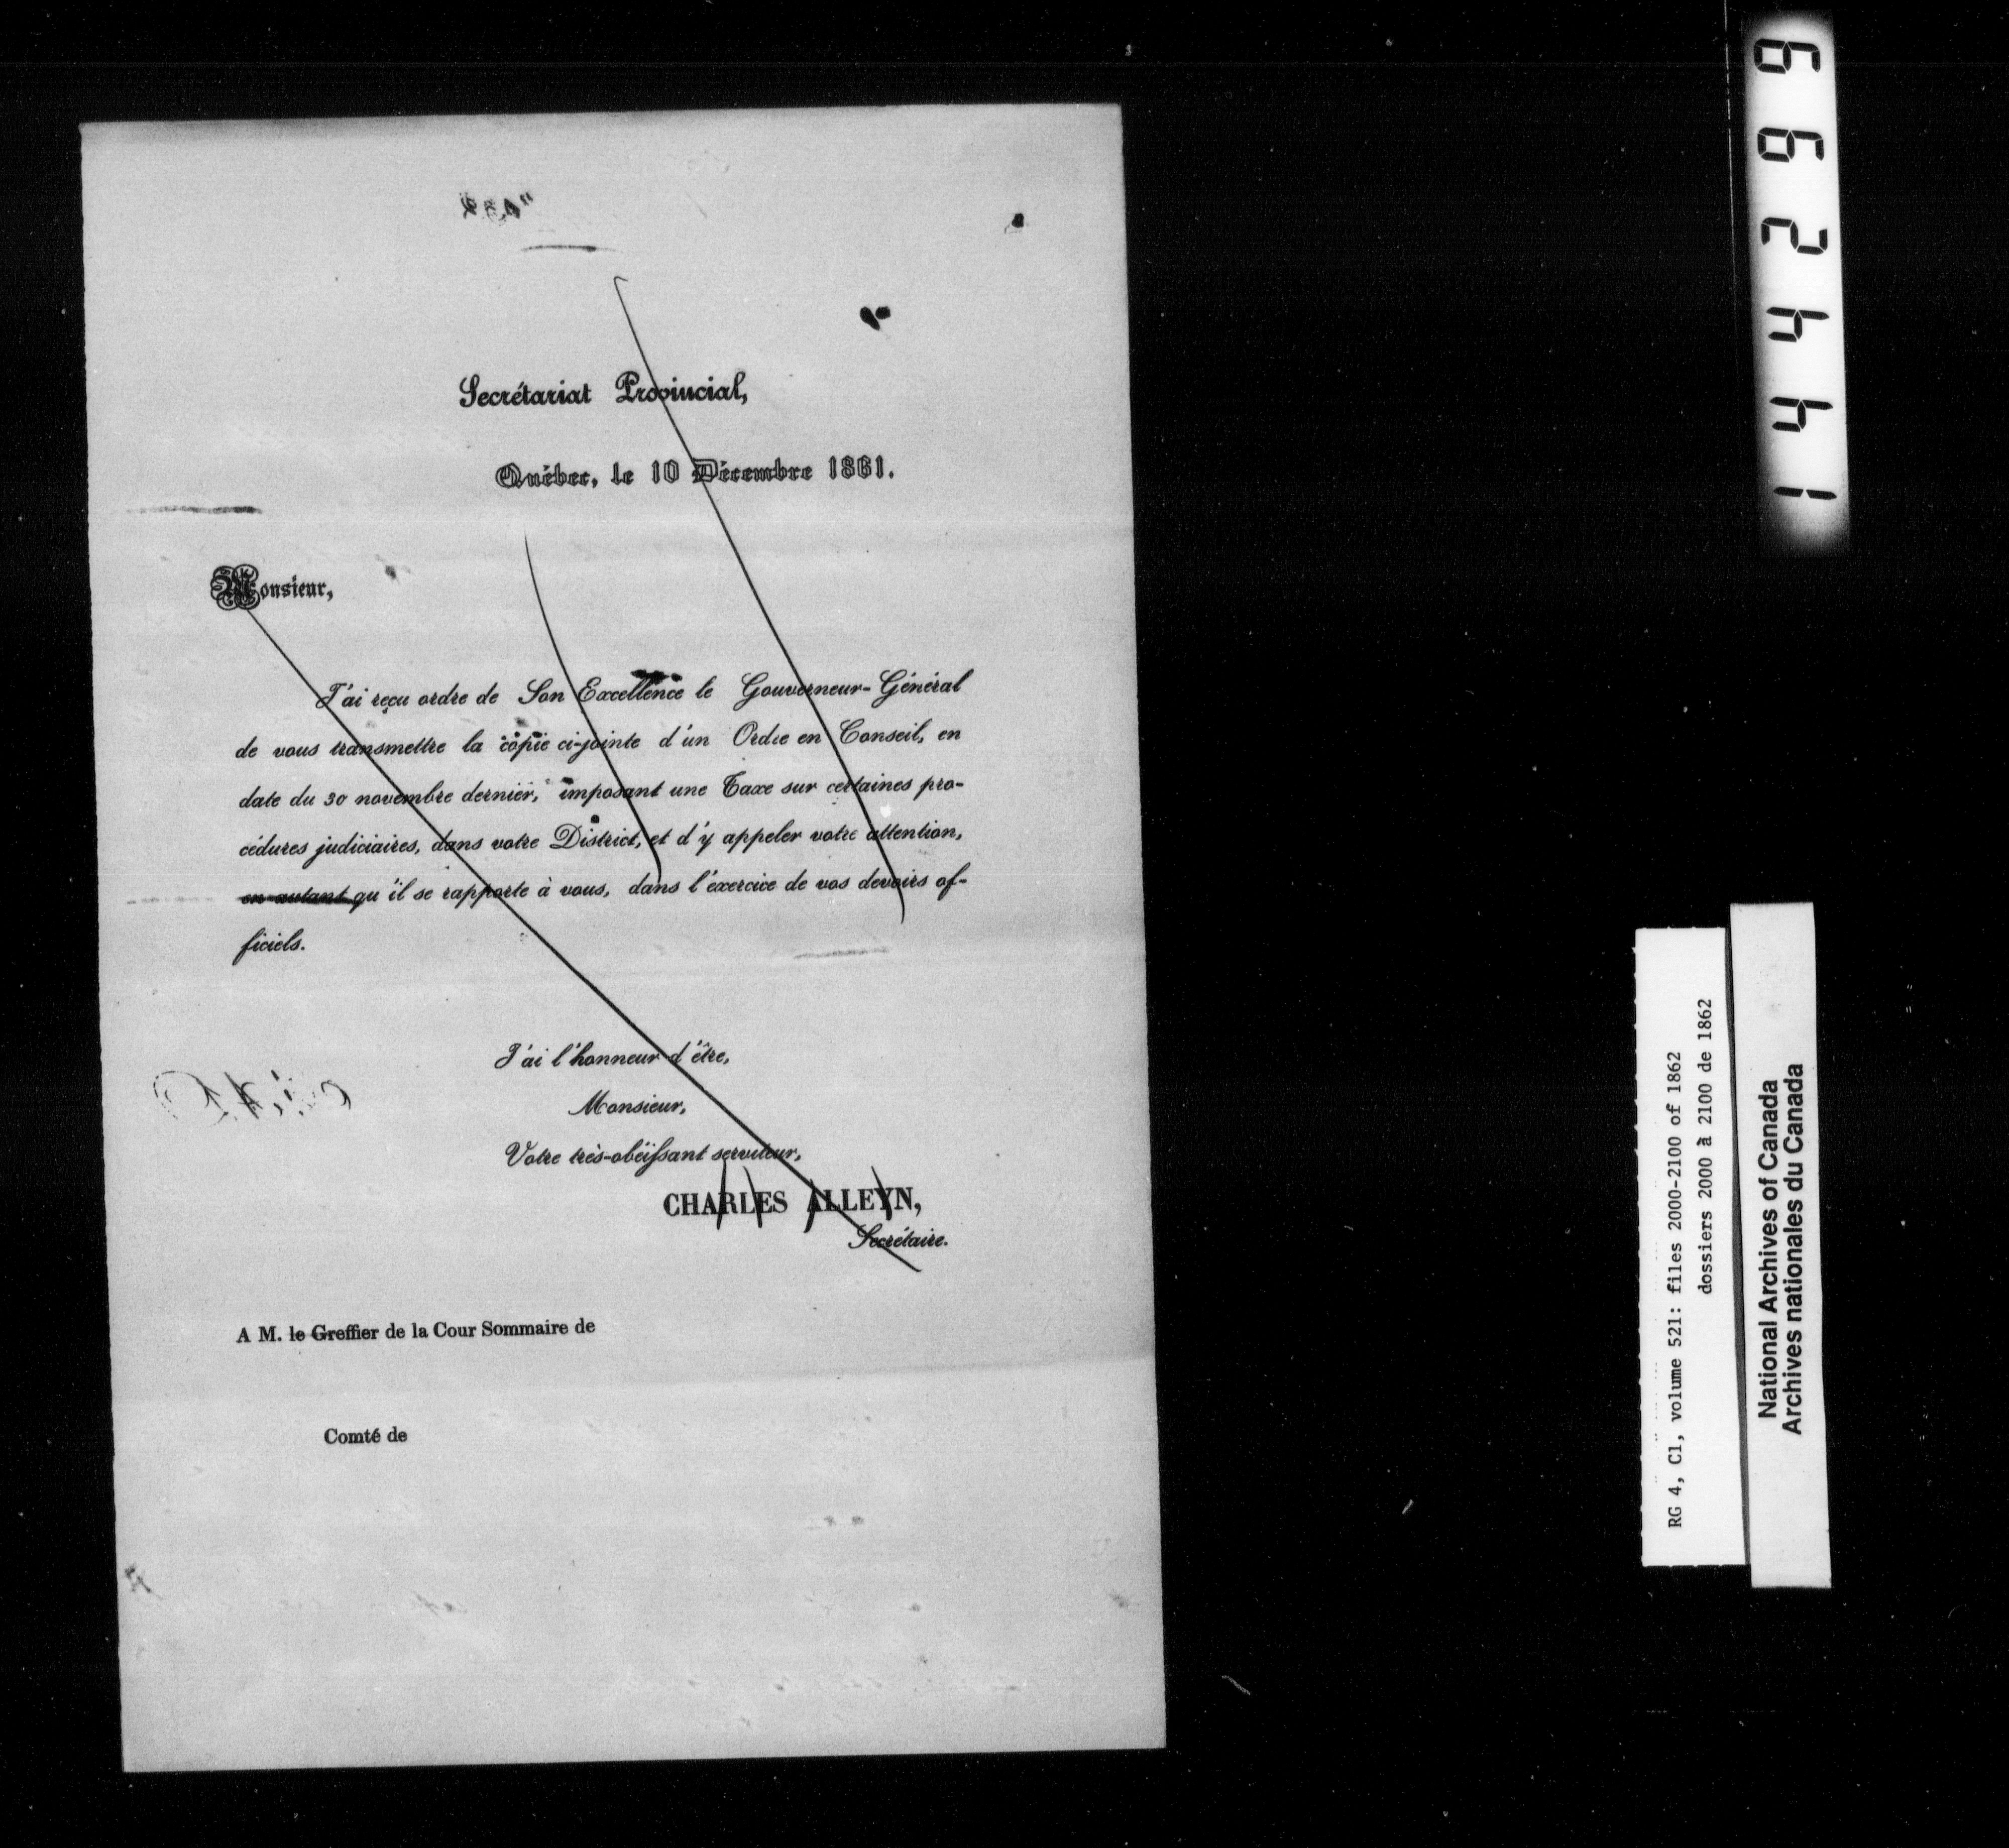 Secrétariat Provincial,
Québec, le 10 Décembre 1861.
Monsieur,
J'ai reçu ordre de Son Excellence le Gouverneur-Général
de vous transmettre la copie ci-jointe d'un Ordre en Conseil, en
date du 30 novembre dernier, imposant une Taxe sur certaines pro-
cédures judiciaires, dans votre District, et d'y appeler votre attention,
en autant qu'il se rapporte à vous, dans l'exercice de vos devoirs of-
ficiels.
J'ai l'honneur d'être,
Monsieur,
Votre très-obéissant serviteur,
CHARLES ALLEYN,
Secrétaire.
A M. le Greffier de la Cour Sommaire de
Comté de
144299
RG 4, C1, volume 521: files 2000-2100 of 1862
dossiers 2000 à 2100 de 1862
National Archives of Canada
Archives nationales du Canada